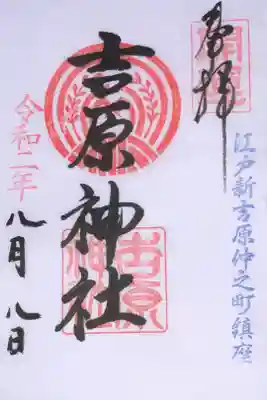 奉拝
江戸新吉原仲之町鎮座
吉原神社
吉原神社
令和二年
八月八日